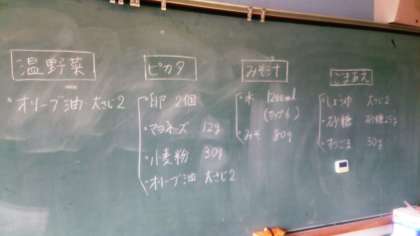 温野菜
・オリーブ油 大さじ2
ピカタ
・卵 2個
・マヨネーズ 12g
・小麦粉 30g
・オリーブ油 大さじ2
みそ汁
・水 1200ml
・みそ 80g
ごまあえ
・しょうゆ 大さじ2
・砂糖
・すりごま 30g